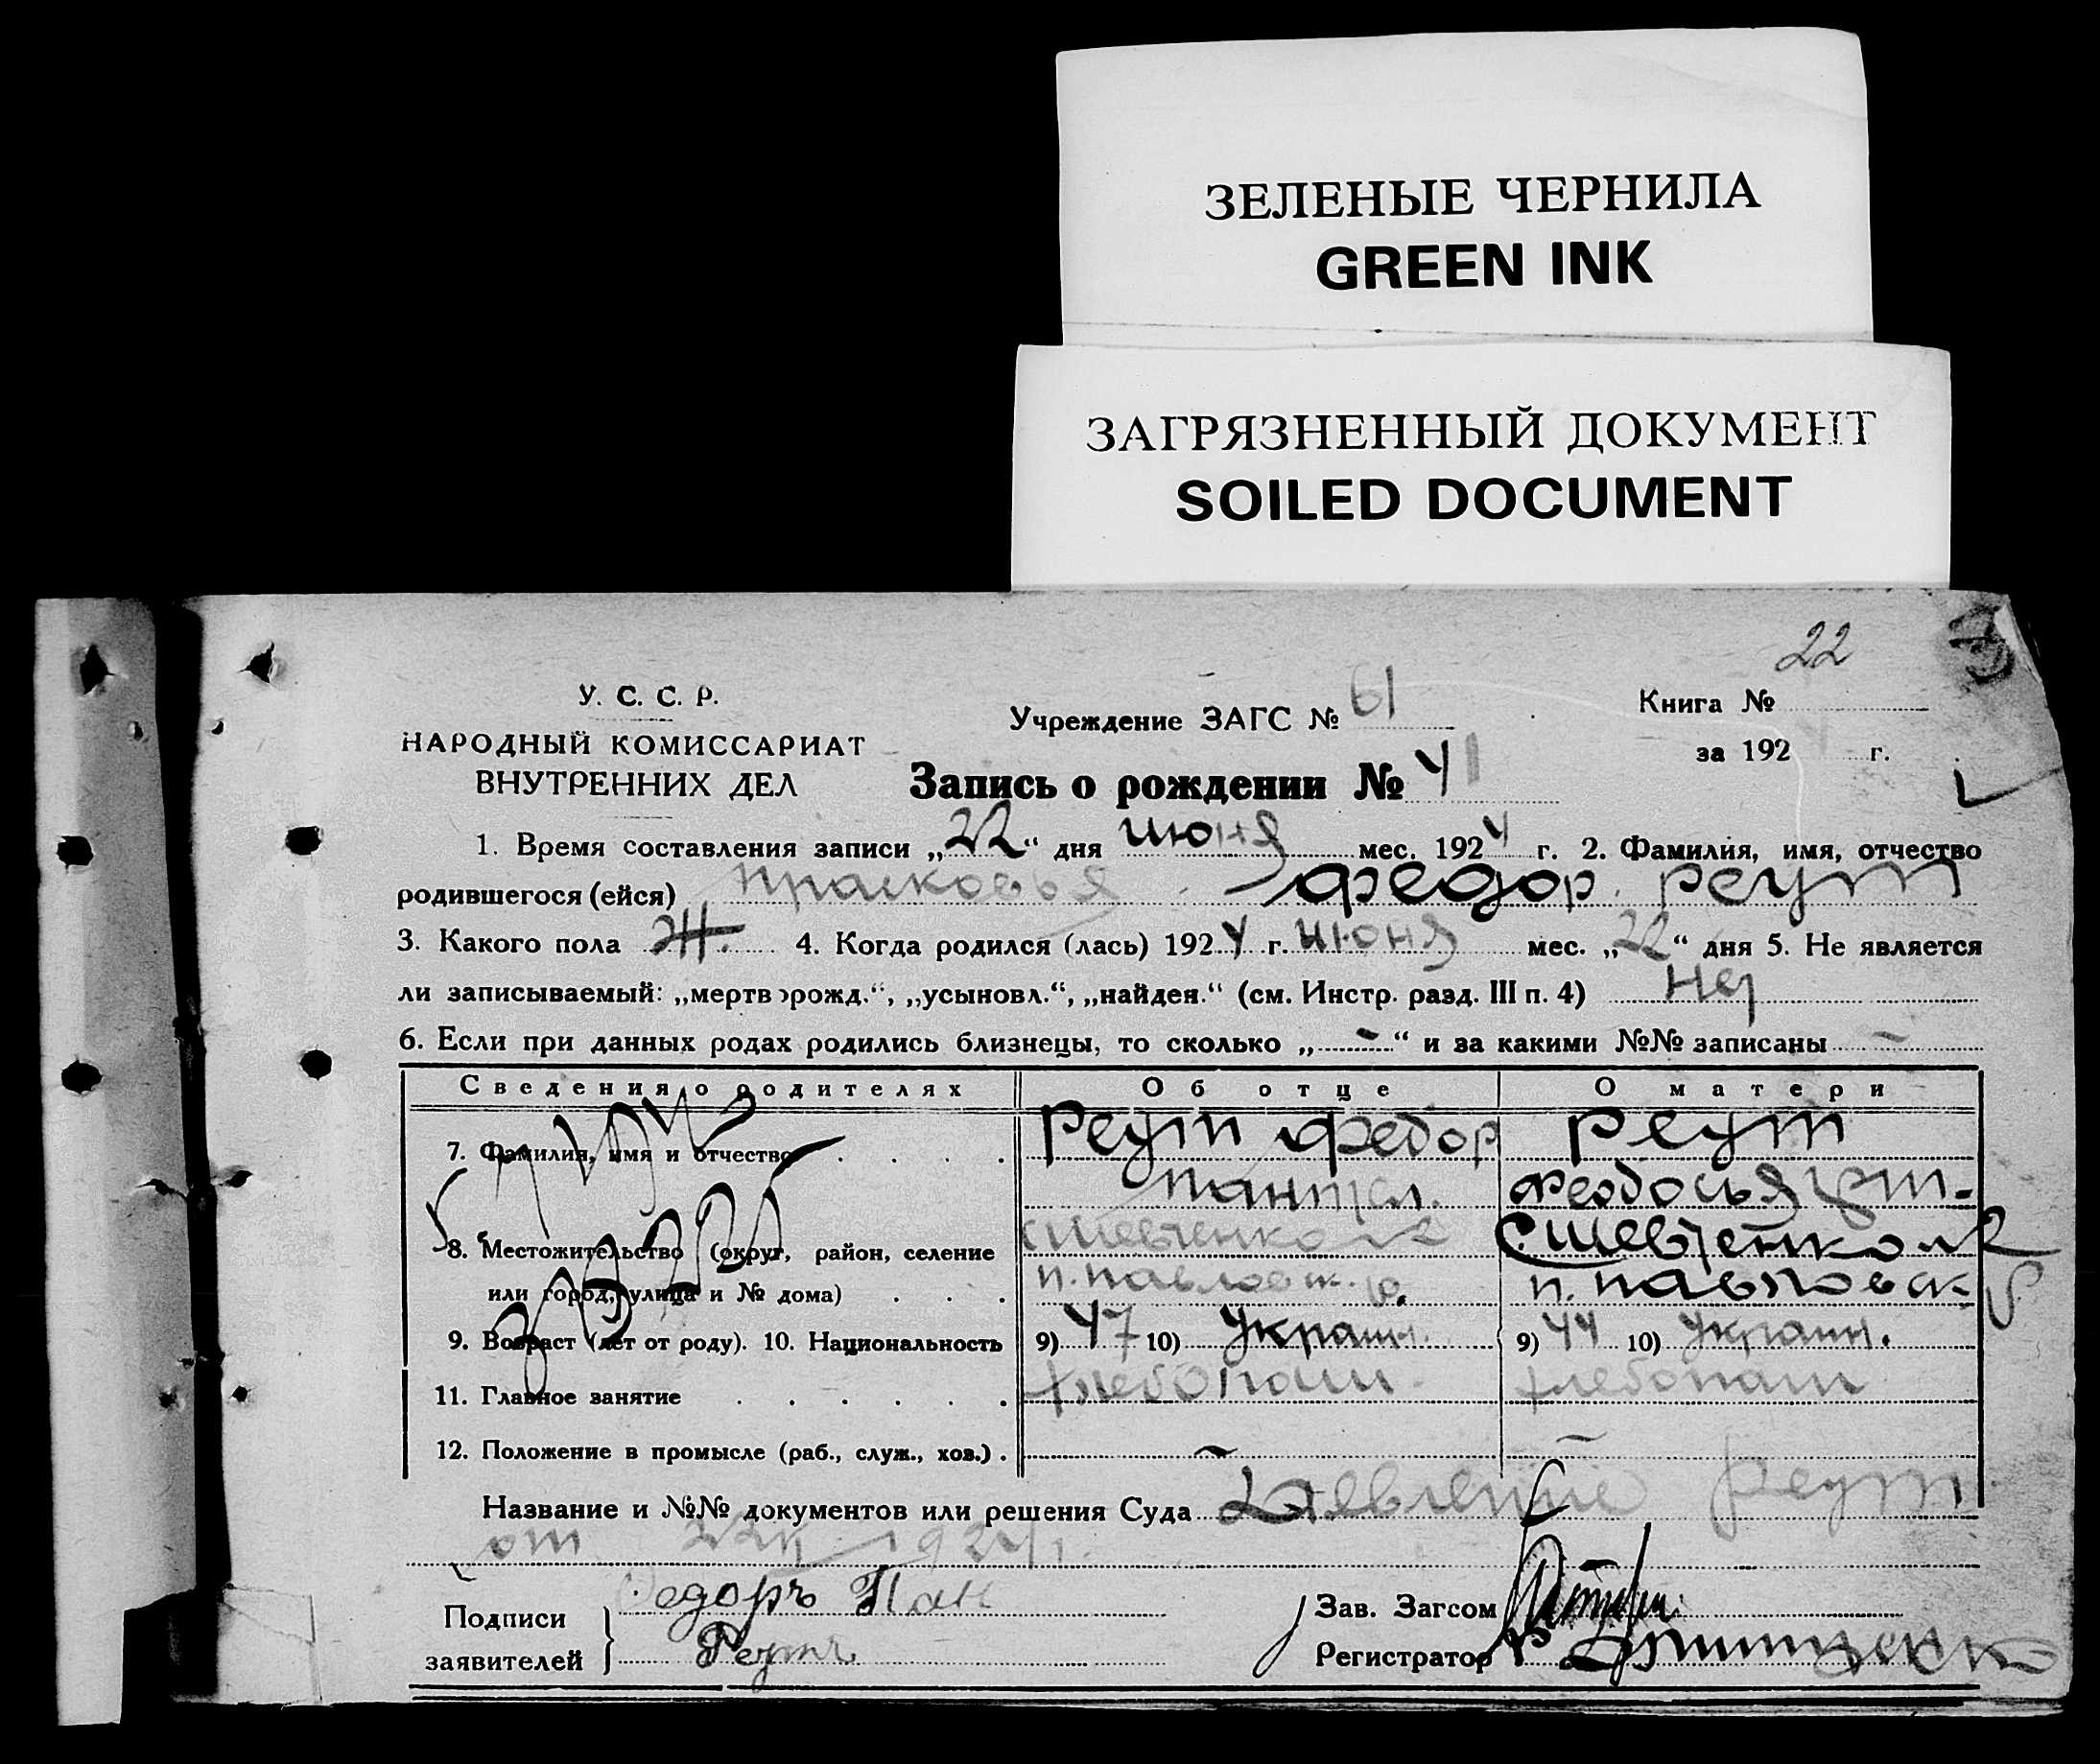 ЗЕЛЕНЫЕ ЧЕРНИЛА
GREEN INK
ЗАГРЯЗНЕННЫЙ ДОКУМЕНТ
SOILED DOCUMENT
22
У. С. С. Р.
НАРОДНЫЙ КОМИССАРИАТ
ВНУТРЕННИХ ДЕЛ
Учреждение ЗАГС № 61
Книга №
за 192 г.
Запись о рождении № 41
1. Время составления записи „22“ дня июня мес. 1924 г. 2. Фамилия, имя, отчество
родившегося (ейся) прасковья федор. реут
3. Какого пола Ж. 4. Когда родился (лась) 1924 г. июня мес. „22“ дня 5. Не является
ли записываемый: „мертворожд.“, „усыновл.“, „найден.“ (см. Инстр. разд. III п. 4) Нет
6. Если при данных родах родились близнецы, то сколько „-“ и за какими №№ записаны -
Сведения о родителях Об отце О матери
7. Фамилия, имя и отчество Реут федор реут
пантел. феодосья
8. Местожительство (округ, район, селение с. шевченко с. шевченко
или город, улица и № дома) п. павловск. п. павловск
9. Возраст (лет от роду). 10. Национальность 9) 47 10) Украин. 9) 44 10) Украин.
11. Главное занятие хлебопаш. хлебопаш
12. Положение в промысле (раб., служ., хоз.) - -
Название и №№ документов или решения Суда Заевление реут
от 1924
Подписи
заявителей
Федоръ Пан
Реутъ
Зав. Загсом
Регистратор